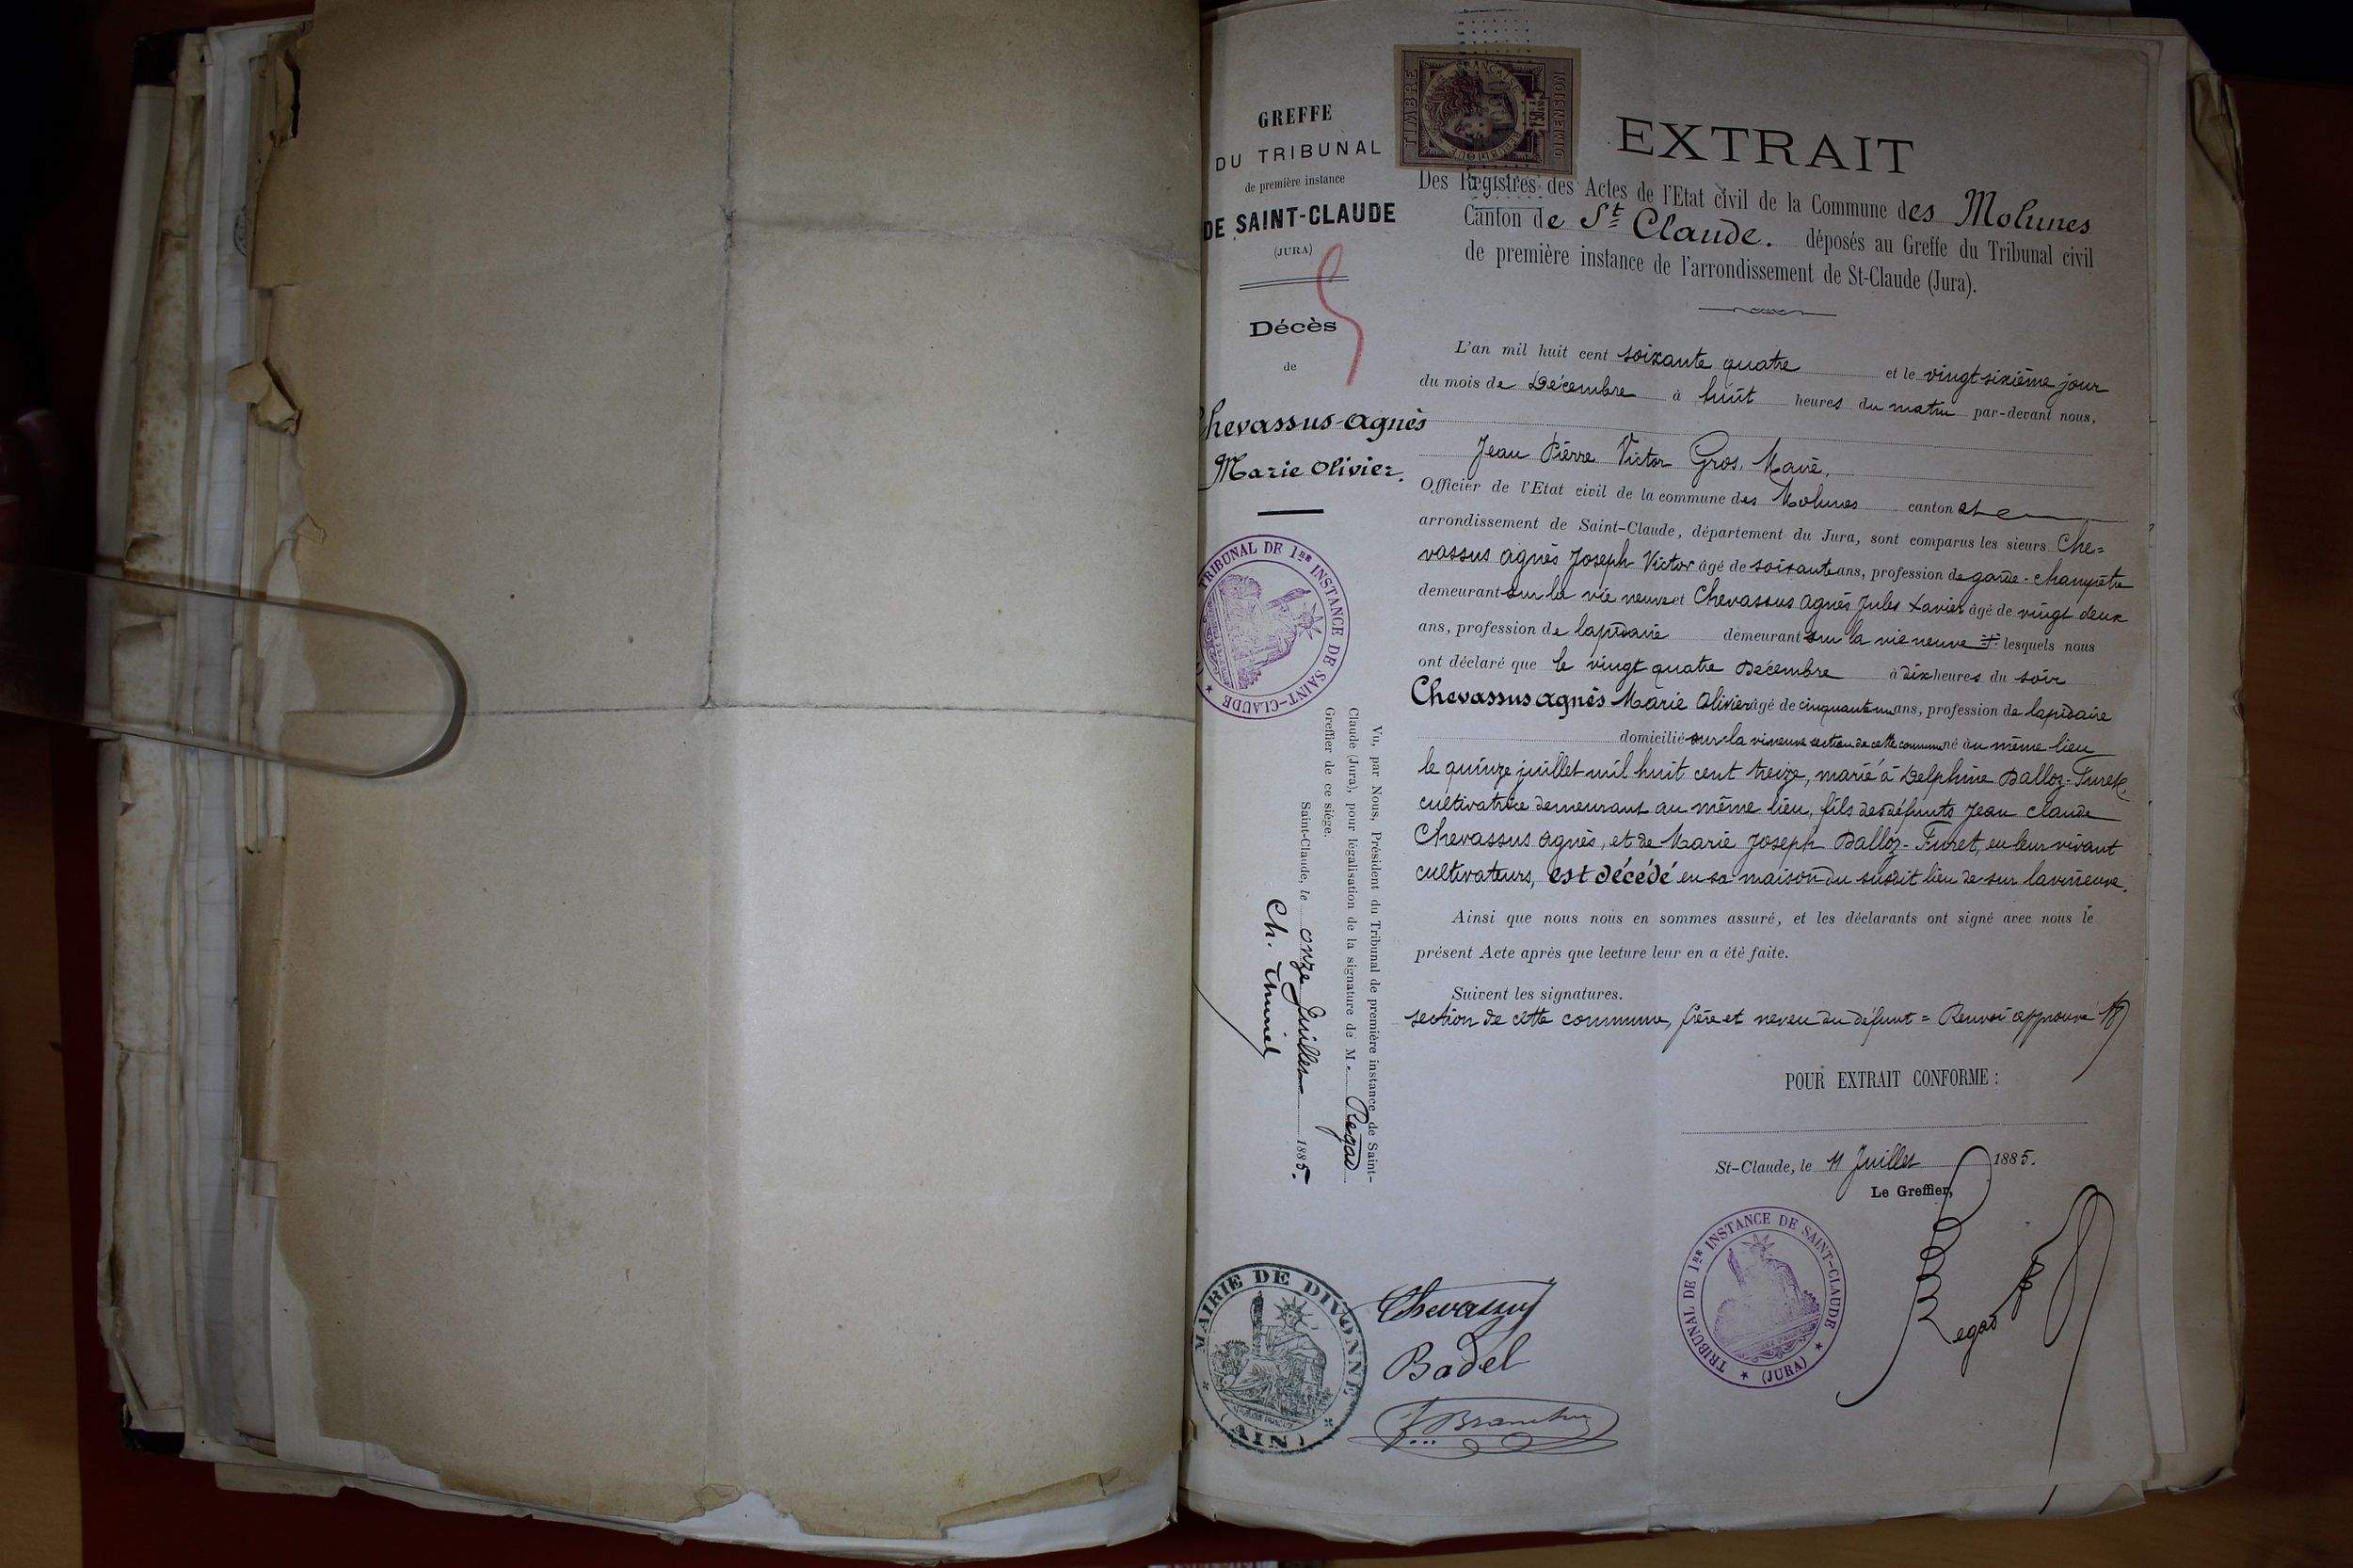 GREFFE
DU TRIBUNAL
de première instance
DE SAINT-CLAUDE
(JURA)
Décès
de
Chevassus-agnès
Marie Olivier.
TRIBUNAL DE 1RE INSTANCE DE SAINT-CLAUDE
Vu, par Nous, Président du Tribunal de première instance de Saint-
Claude (Jura), pour légalisation de la signature de Me Regad
Greffier de ce siège.
Saint-Claude, le onze Juillet 1885.
TIMBRE
DIMENSION
EXTRAIT
Des Registres des Actes de l'Etat civil de la Commune des Molunes
Canton de St Claude. déposés au Greffe du Tribunal civil
de première instance de l'arrondissement de St-Claude (Jura).
L'an mil huit cent soixante quatre et le vingt sixième jour
du mois de Décembre à huit heures du matin par-devant nous,
Jean Pierre Victor Gros, Maire,
Officier de l'Etat civil de la commune des Molunes canton et
arrondissement de Saint-Claude, département du Jura, sont comparus les sieurs Che=
vassus agnès Joseph Victor âgé de soixante ans, profession de garde-champêtre
demeurant sur la vie neuve et Chevassus agnès Jules Xavier âgé de vingt deux
ans, profession de lapidaire demeurant sur la vie neuve ǂ lesquels nous
ont déclaré que le vingt quatre Décembre à dix heures du soir
Chevassus agnès Marie Olivier âgé de cinquante un ans, profession de lapidaire
domicilié sur la vie neuve section de cette commune né au même lieu
le quinze juillet mil huit cent treize, marié à Delphine Dalloz-Furet,
cultivatrice demeurant au même lieu, fils des défunts Jean Claude
Chevassus agnès, et de Marie Joseph Dalloz-Furet, en leur vivant
cultivateurs, est décédé en sa maison du susdit lieu de sur la vie neuve.
Ainsi que nous nous en sommes assuré, et les déclarants ont signé avec nous le
présent Acte après que lecture leur en a été faite.
Suivent les signatures.
section de cette commune, frère et neveu du défunt = Renvoi approuvé
POUR EXTRAIT CONFORME :
St-Claude, le 11 Juillet 1885.
Le Greffier,
Regad
TRIBUNAL DE 1RE INSTANCE DE SAINT-CLAUDE
(JURA)
MAIRIE DE DIVONNE
(AIN)
Chevassus
Badel